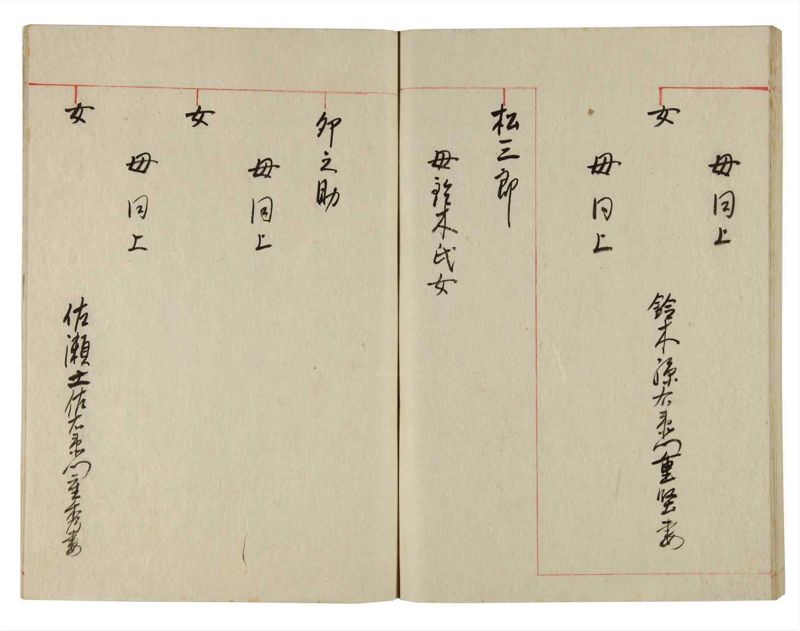 母同上
女
鈴木源右衛門重堅妻
母同上
松三郎
母鈴木氏女
卯之助
母同上
女
母同上
女
佐瀬土佐右衛門重秀妻